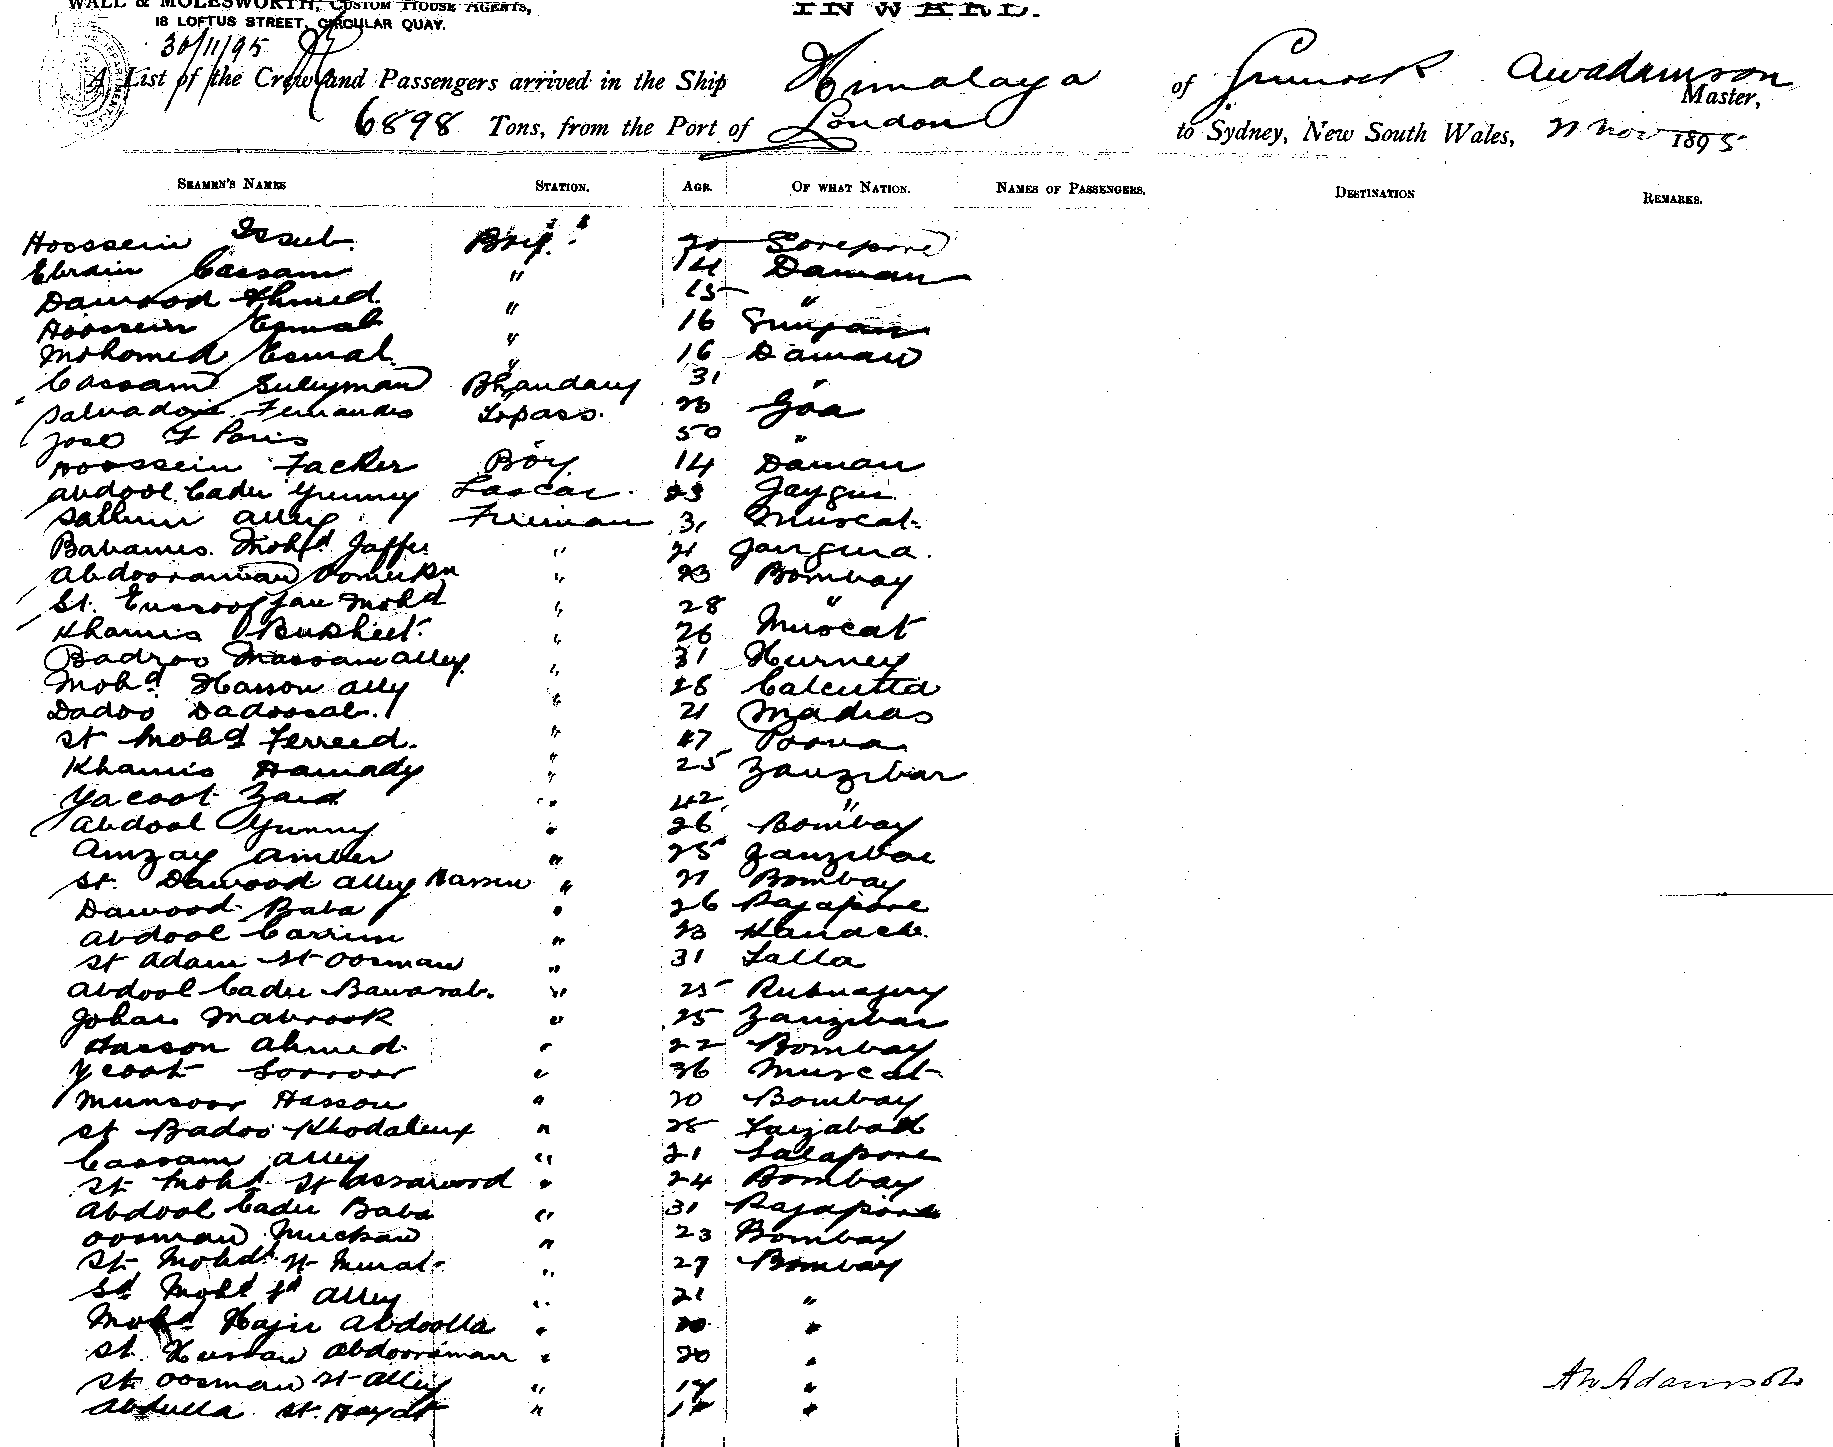 WALL & MOLESWORTH, CUSTOM HOUSE AGENTS,
18 LOFTUS STREET, CIRCULAR QUAY.
INWARD.
30/11/95
A List of the Crew and Passengers arrived in the Ship Himalaya of Greenock AWAdamson Master,
6898 Tons, from the Port of London to Sydney, New South Wales, 1895
SEAMEN'S NAMES STATION. AGE. OF WHAT NATION. NAMES OF PASSENGERS. DESTINATION REMARKS.
Hoossein Issub. Boy. 20
Ebraim Cassam " 14 Daman
Dawood Ahmed " 15 "
Hoossein Esmal " 16
Mohomed Esmal " 16 Daman
Cassam Suleyman Bhandary 31 "
Salvador Fernandes Topass. Goa
Jose F Paris 50 "
Hoossein Facker Boy 14 Daman
Abdool Cader Yunny Lascar. 23 Jaygur
Sallim Alley Fireman 31 Muscat
Mohd Jaffer " 21
Abdooraman " 23 Bombay
St. Jan Mohd " 28 "
Khamis Bukheet " 26 Muscat
Badroo Hassam alley " 31 Hurney
Mohd Hasson ally " 28 Calcutta
Dadoo Dadoosab. " 21 Madras
St Mohd Ferreed. " 47 Poona
Khamis Hamady " 25 Zanzibar
Yacoot Zaid " 42 "
Abdool Yunny " 26 Bombay
Amzay Amber " 25 Zanzibar
St. Dawood Alley Hassen " Bombay
Dawood Baba " 26 Rajapore
Abdool Carrim " 23
St Adam St Oosman " 31
Abdool Cader Bawasab. " 25 Rutnagery
Johar Mabrook " 25 Zanzibar
Hasson Ahmed " 22 Bombay
Ycoot Sorroor " 36 Muscat
Munsoor Hasson " 20 Bombay
St Badoo Khodabux " 25 Faizabad
Cassam Alley " 21
St Mohd St " 24 Bombay
Abdool Cader Baba " 31 Rajapore
Oosman " 23 Bombay
St Mohd St Murat " 27 Bombay
Sd Mohd Sd Alley " 21 "
Mohd Hajie Abdoolla " 20 "
St. Abdooraman " 20 "
St Oosman St Alley " "
Abdulla St. Hayat " "
AW Adamson